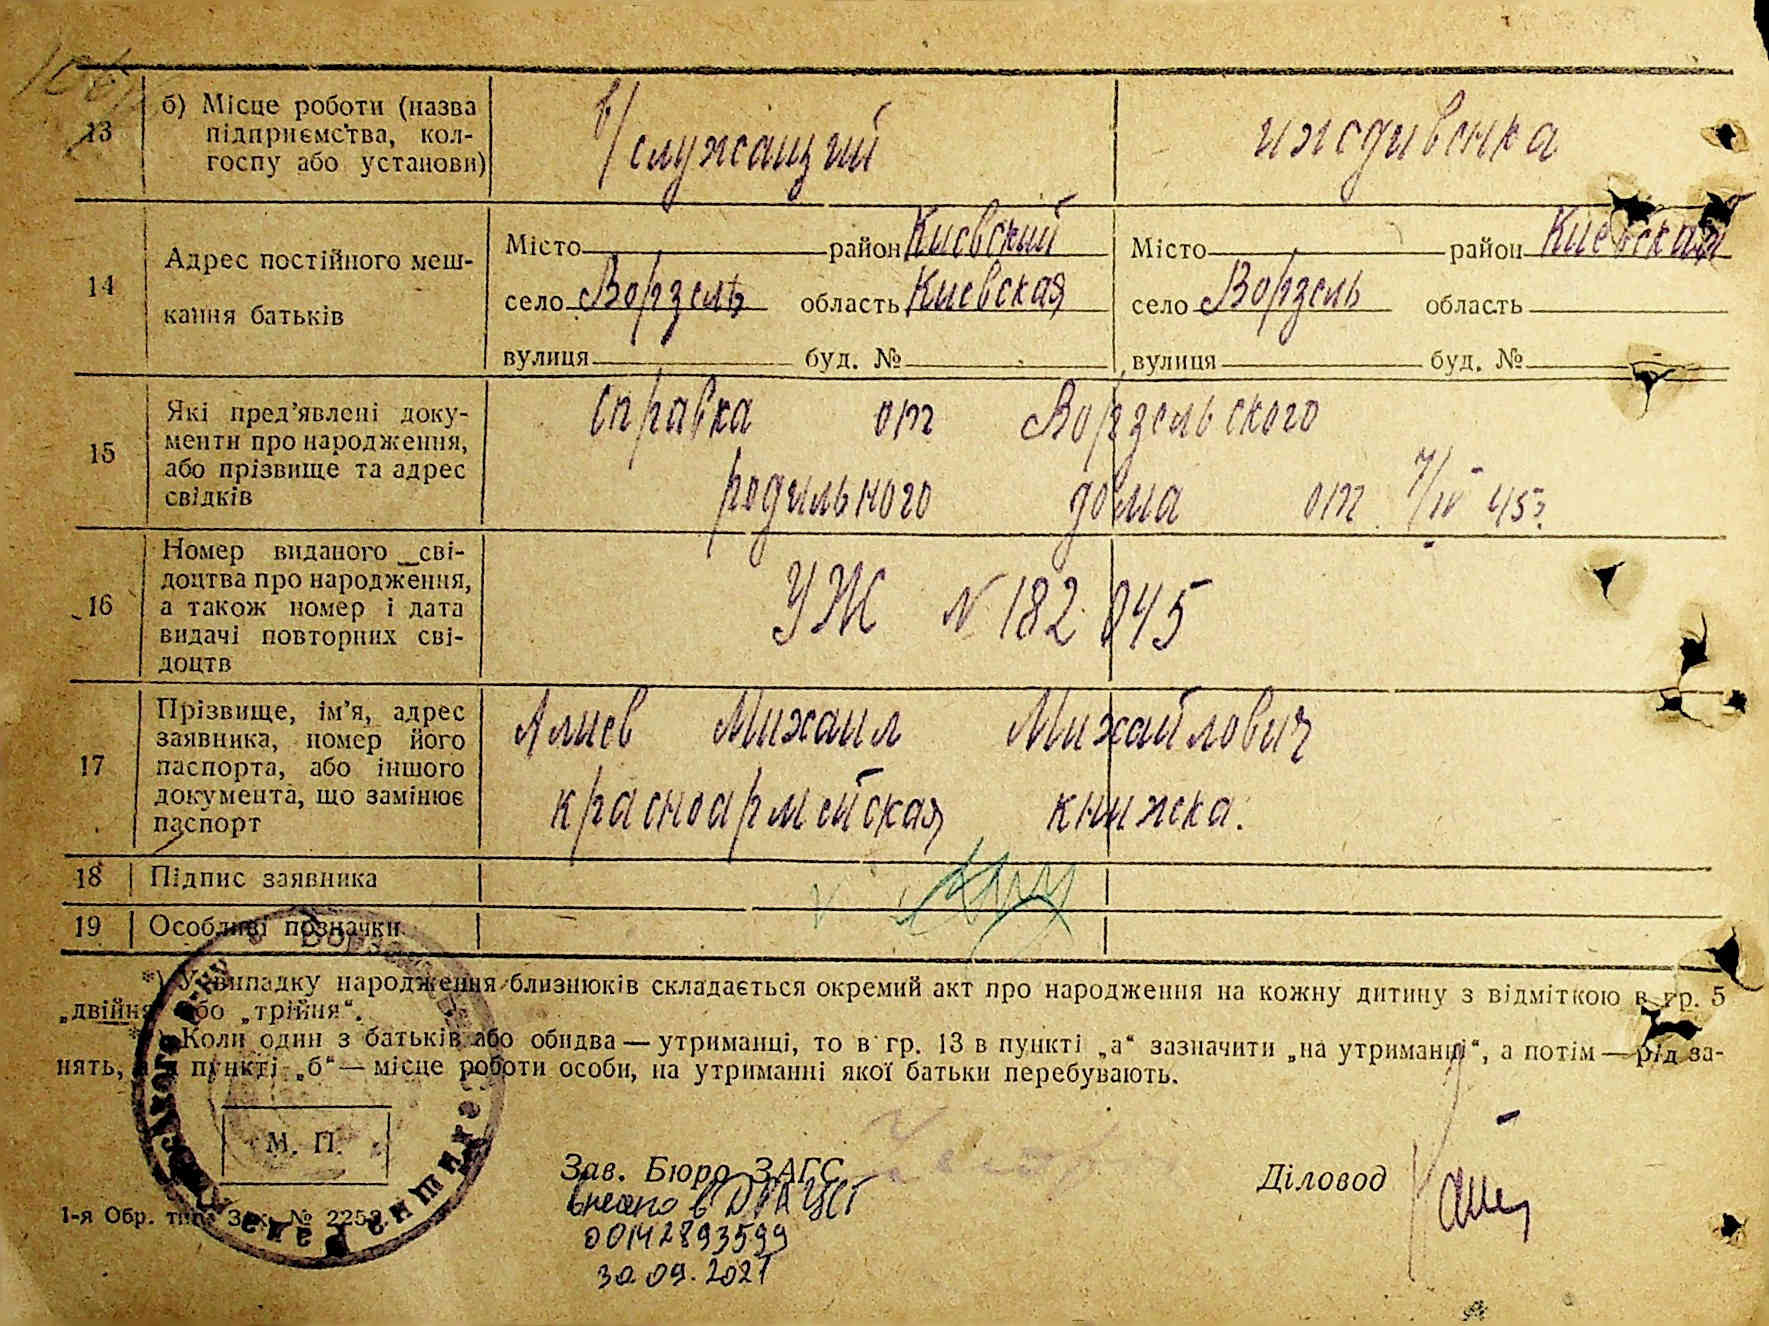 13 б) Місце роботи (назва підприємства, колгоспу або установи) в/служащий иждивенка
14 Адрес постійного меш-
кання батьків
Місто район Киевский Місто район Киевская
село Ворзель область Киевская село Ворзель область
вулиця буд. № вулиця буд. №
15 Які пред’явлені доку-
менти про народження,
або прізвище та адрес
свідків
справка от Ворзельского
родильного дома от 7/IV 45г.
16 Номер виданого сві-
доцтва про народження,
а також номер і дата
видачі повторних сві-
доцтв
УЖ № 182 045
17 Прізвище, ім’я, адрес
заявника, номер його
паспорта, або іншого
документа, що замінює
паспорт
Алиев Михаил Михайлович
красноармейская книжка.
18 Підпис заявника
19 Особливі позначки
*) У випадку народження близнюків складається окремий акт про народження на кожну дитину з відміткою в гр. 5
„двійня“ або „трійня“.
Коли один з батьків або обидва — утриманці, то в гр. 13 в пункті „а“ зазначити „на утриманці“, а потім — рід за-
нять, в пункті „б“ — місце роботи особи, на утриманні якої батьки перебувають.
М. П.
Зав. Бюро ЗАГС
Діловод
внесено в ДРАЦСГ
00142893599
30.09.2021
1-я Обр. тип. Зак. № 2253